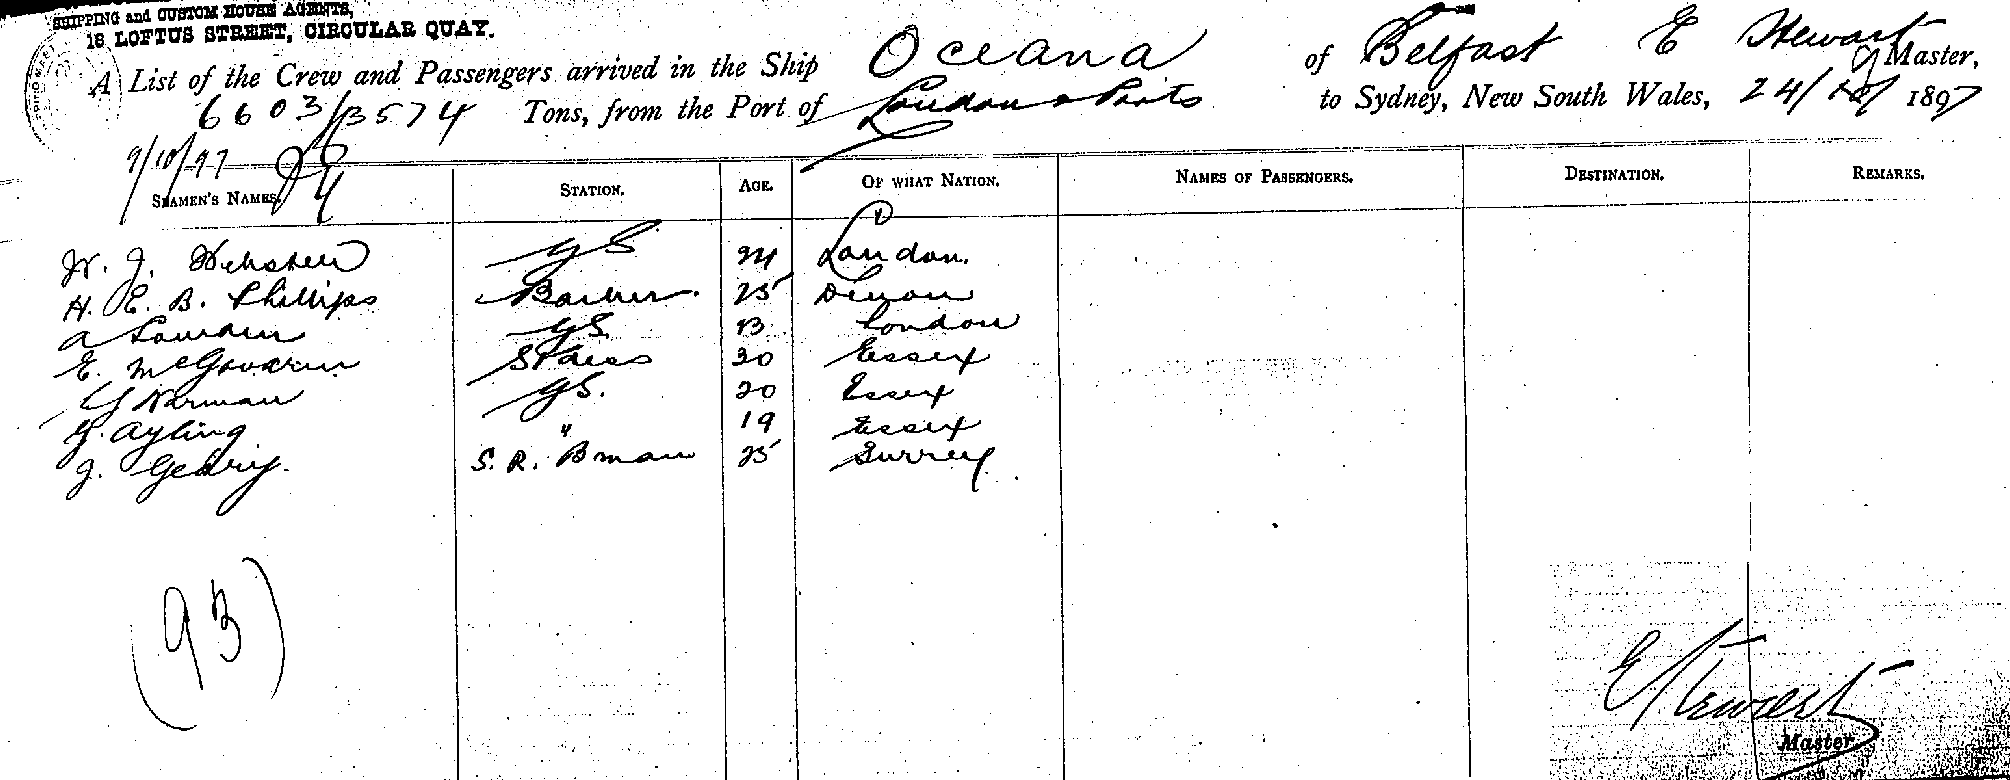 SHIPPING and CUSTOM HOUSE AGENTS,
18 LOFTUS STREET, CIRCULAR QUAY.
A List of the Crew and Passengers arrived in the Ship Oceana of Belfast E Stewart Master,
6603/3574 Tons, from the Port of London & Ports to Sydney, New South Wales, 24/10/1897
9/10/97
SEAMEN'S NAMES. STATION. AGE. OF WHAT NATION. NAMES OF PASSENGERS. DESTINATION. REMARKS.
W. J. Webster GS 24 London.
H. E. B. Phillips Barber. 25 Devon
A GS London
E. McGovern 30 Essex
Norman GS. 20 Essex
Ayling. " 19 Essex
J. Geary. S. R. Bman 25 Surrey.
(93)
E Stewart
Master